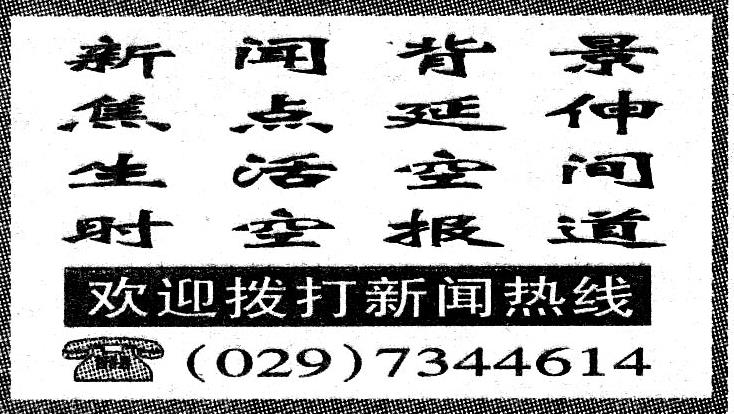 新闻背景
焦点延伸
生活空间
时空报道
欢迎拨打新闻热线
（029）7344614